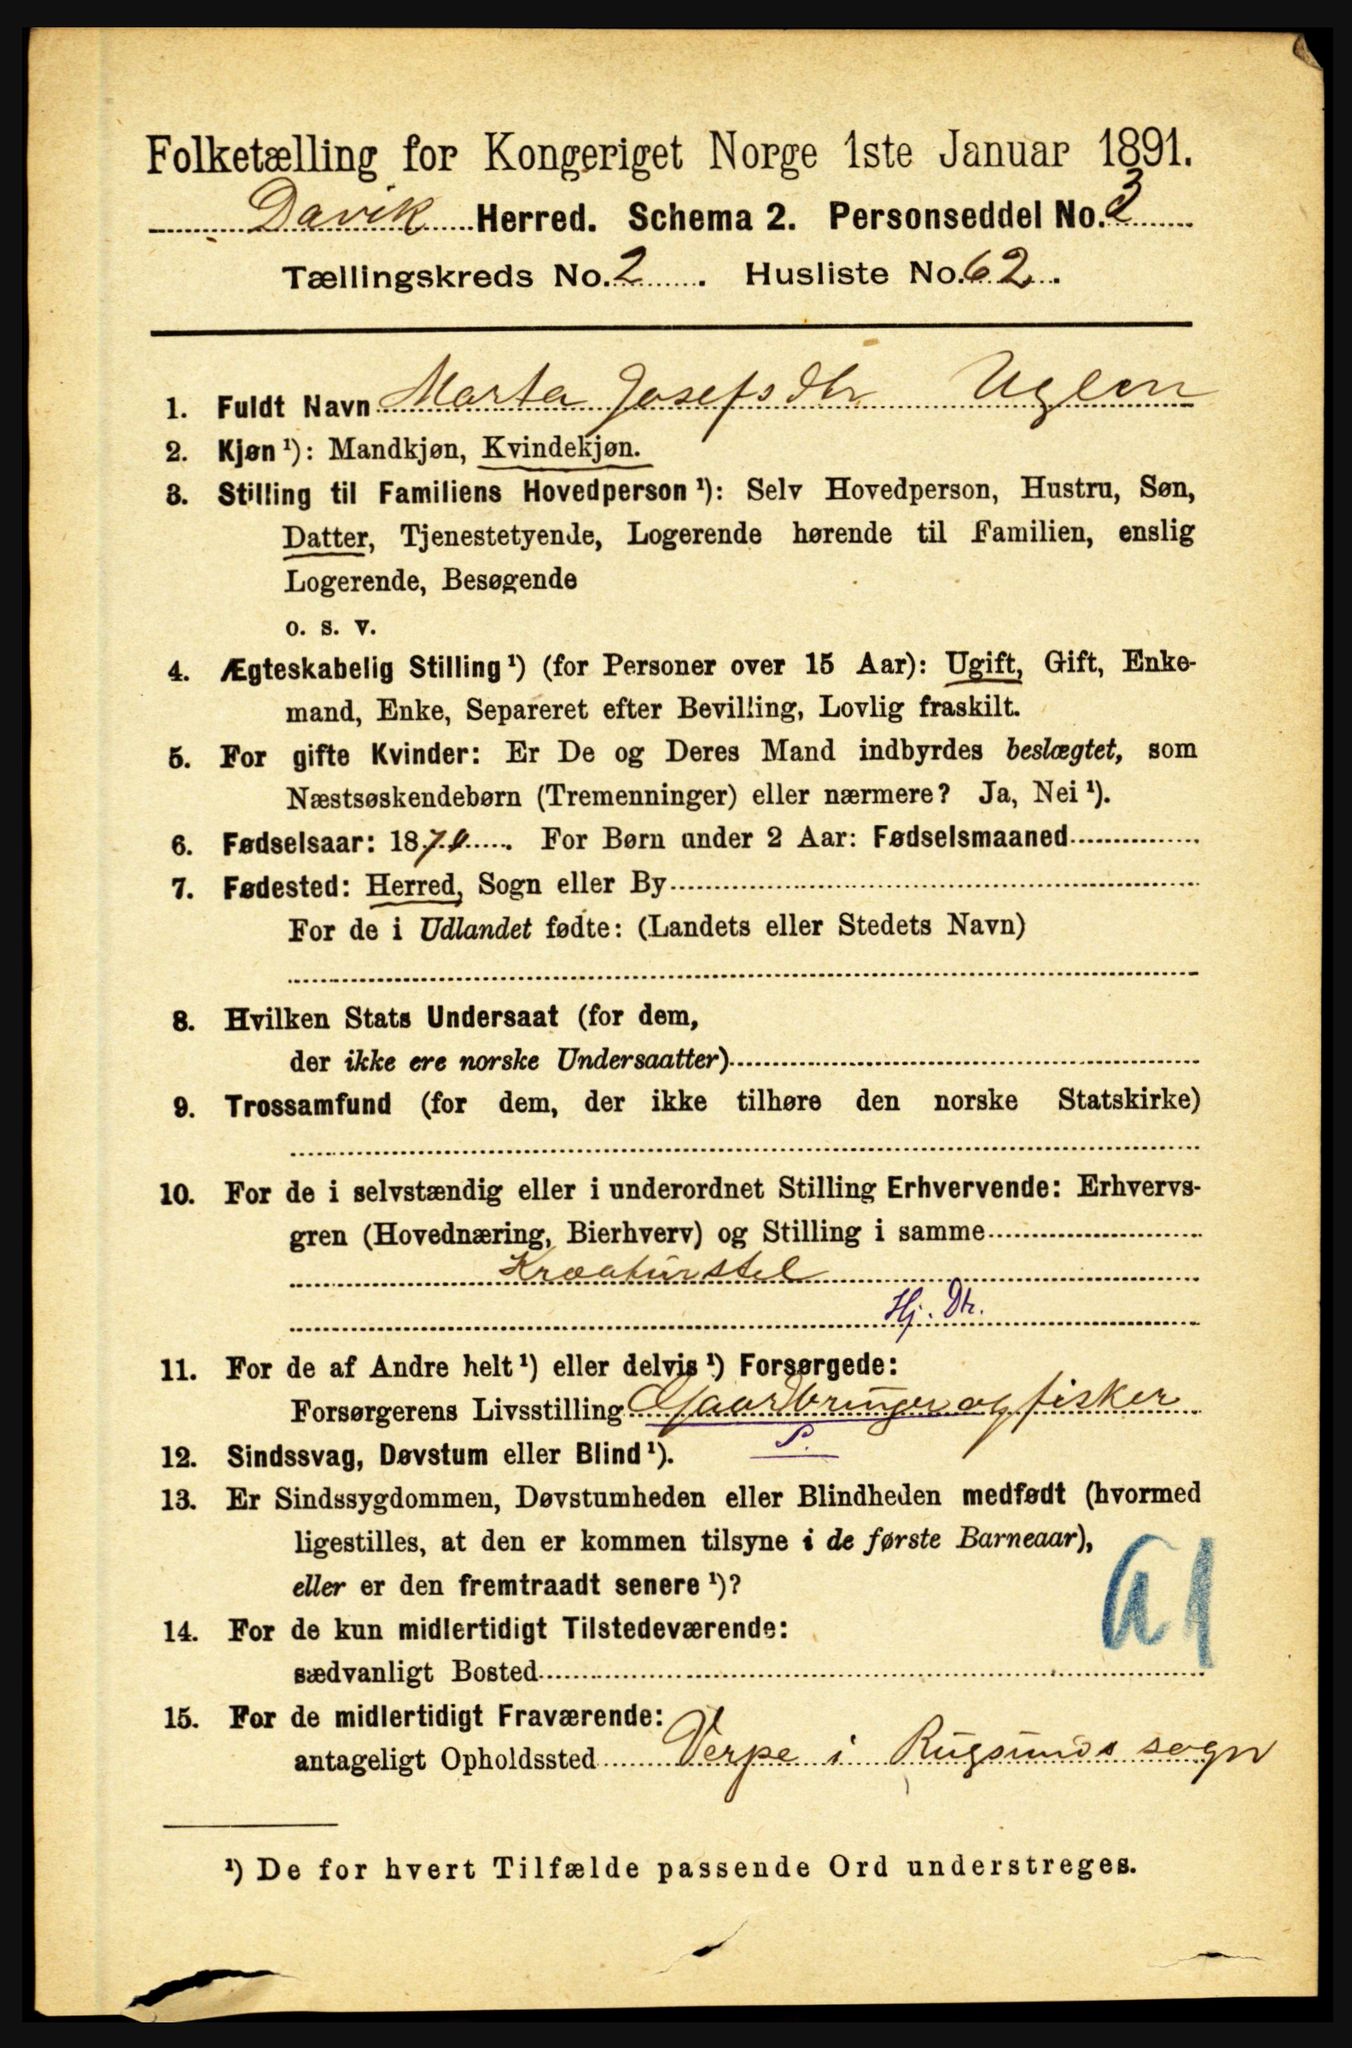 Folketælling for Kongeriget Norge 1ste Januar 1891.
Davik Herred. Schema 2. Personseddel No. 3
Tællingskreds No. 2. Husliste No. 62.
1. Fuldt Navn Marta Josefsdtr Uglen
2. Kjøn ¹): Mandkjøn, Kvindekjøn.
3. Stilling til Familiens Hovedperson ¹): Selv Hovedperson, Hustru, Søn,
Datter, Tjenestetyende, Logerende hørende til Familien, enslig
Logerende, Besøgende
o. s. v.
4. Ægteskabelig Stilling ¹) (for Personer over 15 Aar): Ugift, Gift, Enke-
mand, Enke, Separeret efter Bevilling, Lovlig fraskilt.
5. For gifte Kvinder: Er De og Deres Mand indbyrdes beslægtet, som
Næstsøskendebørn (Tremenninger) eller nærmere? Ja, Nei ¹).
6. Fødselsaar: 1870. For Børn under 2 Aar: Fødselsmaaned
7. Fødested: Herred, Sogn eller By
For de i Udlandet fødte: (Landets eller Stedets Navn)
8. Hvilken Stats Undersaat (for dem,
der ikke ere norske Undersaatter)
9. Trossamfund (for dem, der ikke tilhøre den norske Statskirke)
10. For de i selvstændig eller i underordnet Stilling Erhvervende: Erhvervs-
gren (Hovednæring, Bierhverv) og Stilling i samme
Kreaturstel
Hj. Dtr.
11. For de af Andre helt ¹) eller delvis ¹) Forsørgede:
Forsørgerens Livsstilling Gaardbruger og fisker
S.
12. Sindssvag, Døvstum eller Blind ¹).
13. Er Sindssygdommen, Døvstumheden eller Blindheden medfødt (hvormed
ligestilles, at den er kommen tilsyne i de første Barneaar),
eller er den fremtraadt senere ¹)?
14. For de kun midlertidigt Tilstedeværende:
sædvanligt Bosted
15. For de midlertidigt Fraværende:
antageligt Opholdssted Verpe i Rugsunds sogn
¹) De for hvert Tilfælde passende Ord understreges.